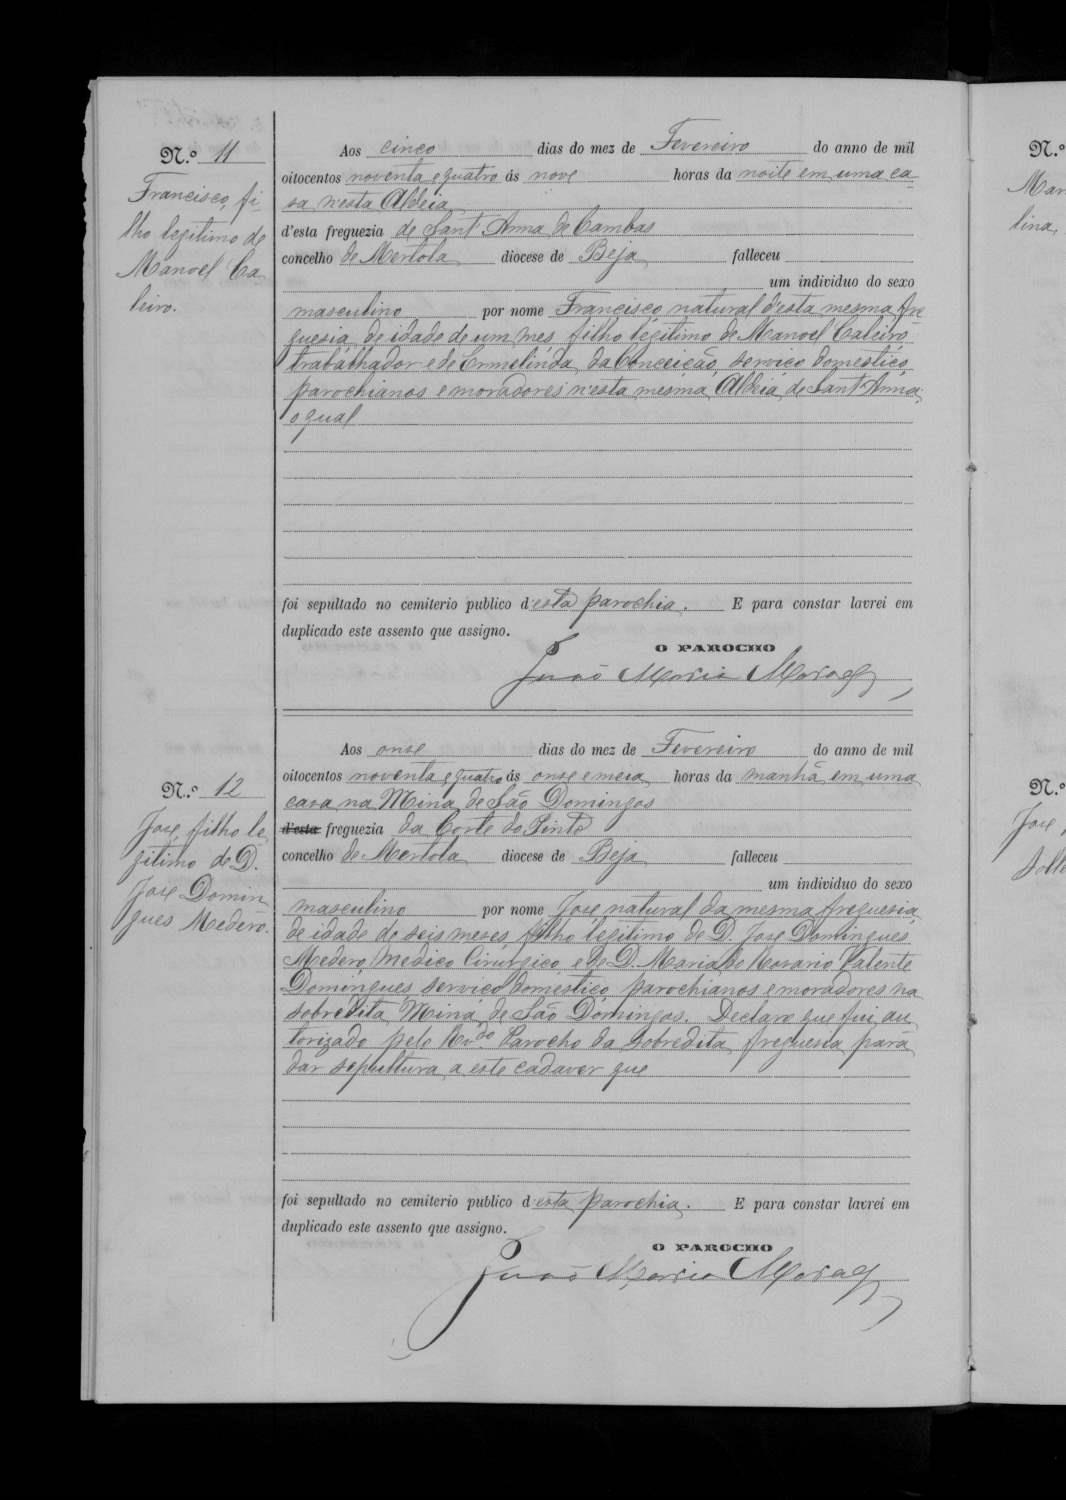 N.º 11
Francisco, fi-
lho legitimo de
Manoel Ca-
leiro.
Aos cinco dias do mez de Fevereiro do anno de mil
oitocentos noventa e quatro ás nove horas da noite em uma ca-
sa n'esta Aldeia
d'esta freguezia de Sant'Anna de Cambas
concelho de Mertola diocese de Beja falleceu
um individuo do sexo
masculino por nome Francisco natural d'esta mesma fre
guesia, de idade de um mes, filho legitimo de Manoel Caleiro
trabalhador e de Ermelinda da Conceição, serviço domestico,
parochianos e moradores n'esta mesma Aldeia de Sant'Anna,
o qual
foi sepultado no cemiterio publico d'esta parochia. E para constar lavrei em
duplicado este assento que assigno.
O PAROCHO
João Maria
N.º 12
Jose, filho le
gitimo de D.
Jose Domin
gues Medero.
Aos onse dias do mez de Fevereiro do anno de mil
oitocentos noventa e quatro ás onse e meia horas da manhã em uma
casa na Mina de São Domingos
d'esta freguezia da Corte do Pinto
concelho de Mertola diocese de Beja falleceu
um individuo do sexo
masculino por nome Jose, natural da mesma freguesia,
de idade de seis meses, filho legitimo de D. Jose Domingues
Medero, Medico Cirurgico, e de D. Maria do Rosario Valente
Domingues, serviço domestico, parochianos e moradores na
sobredita Mina de São Domingos. Declaro que fui au
torizado pelo Rv.do Parocho da sobredita freguesia para
dar sepultura a este cadaver que
foi sepultado no cemiterio publico d'esta parochia. E para constar lavrei em
duplicado este assento que assigno.
O PAROCHO
João Maria
N.º
Mar
lina,
N.º
Jose,
solte